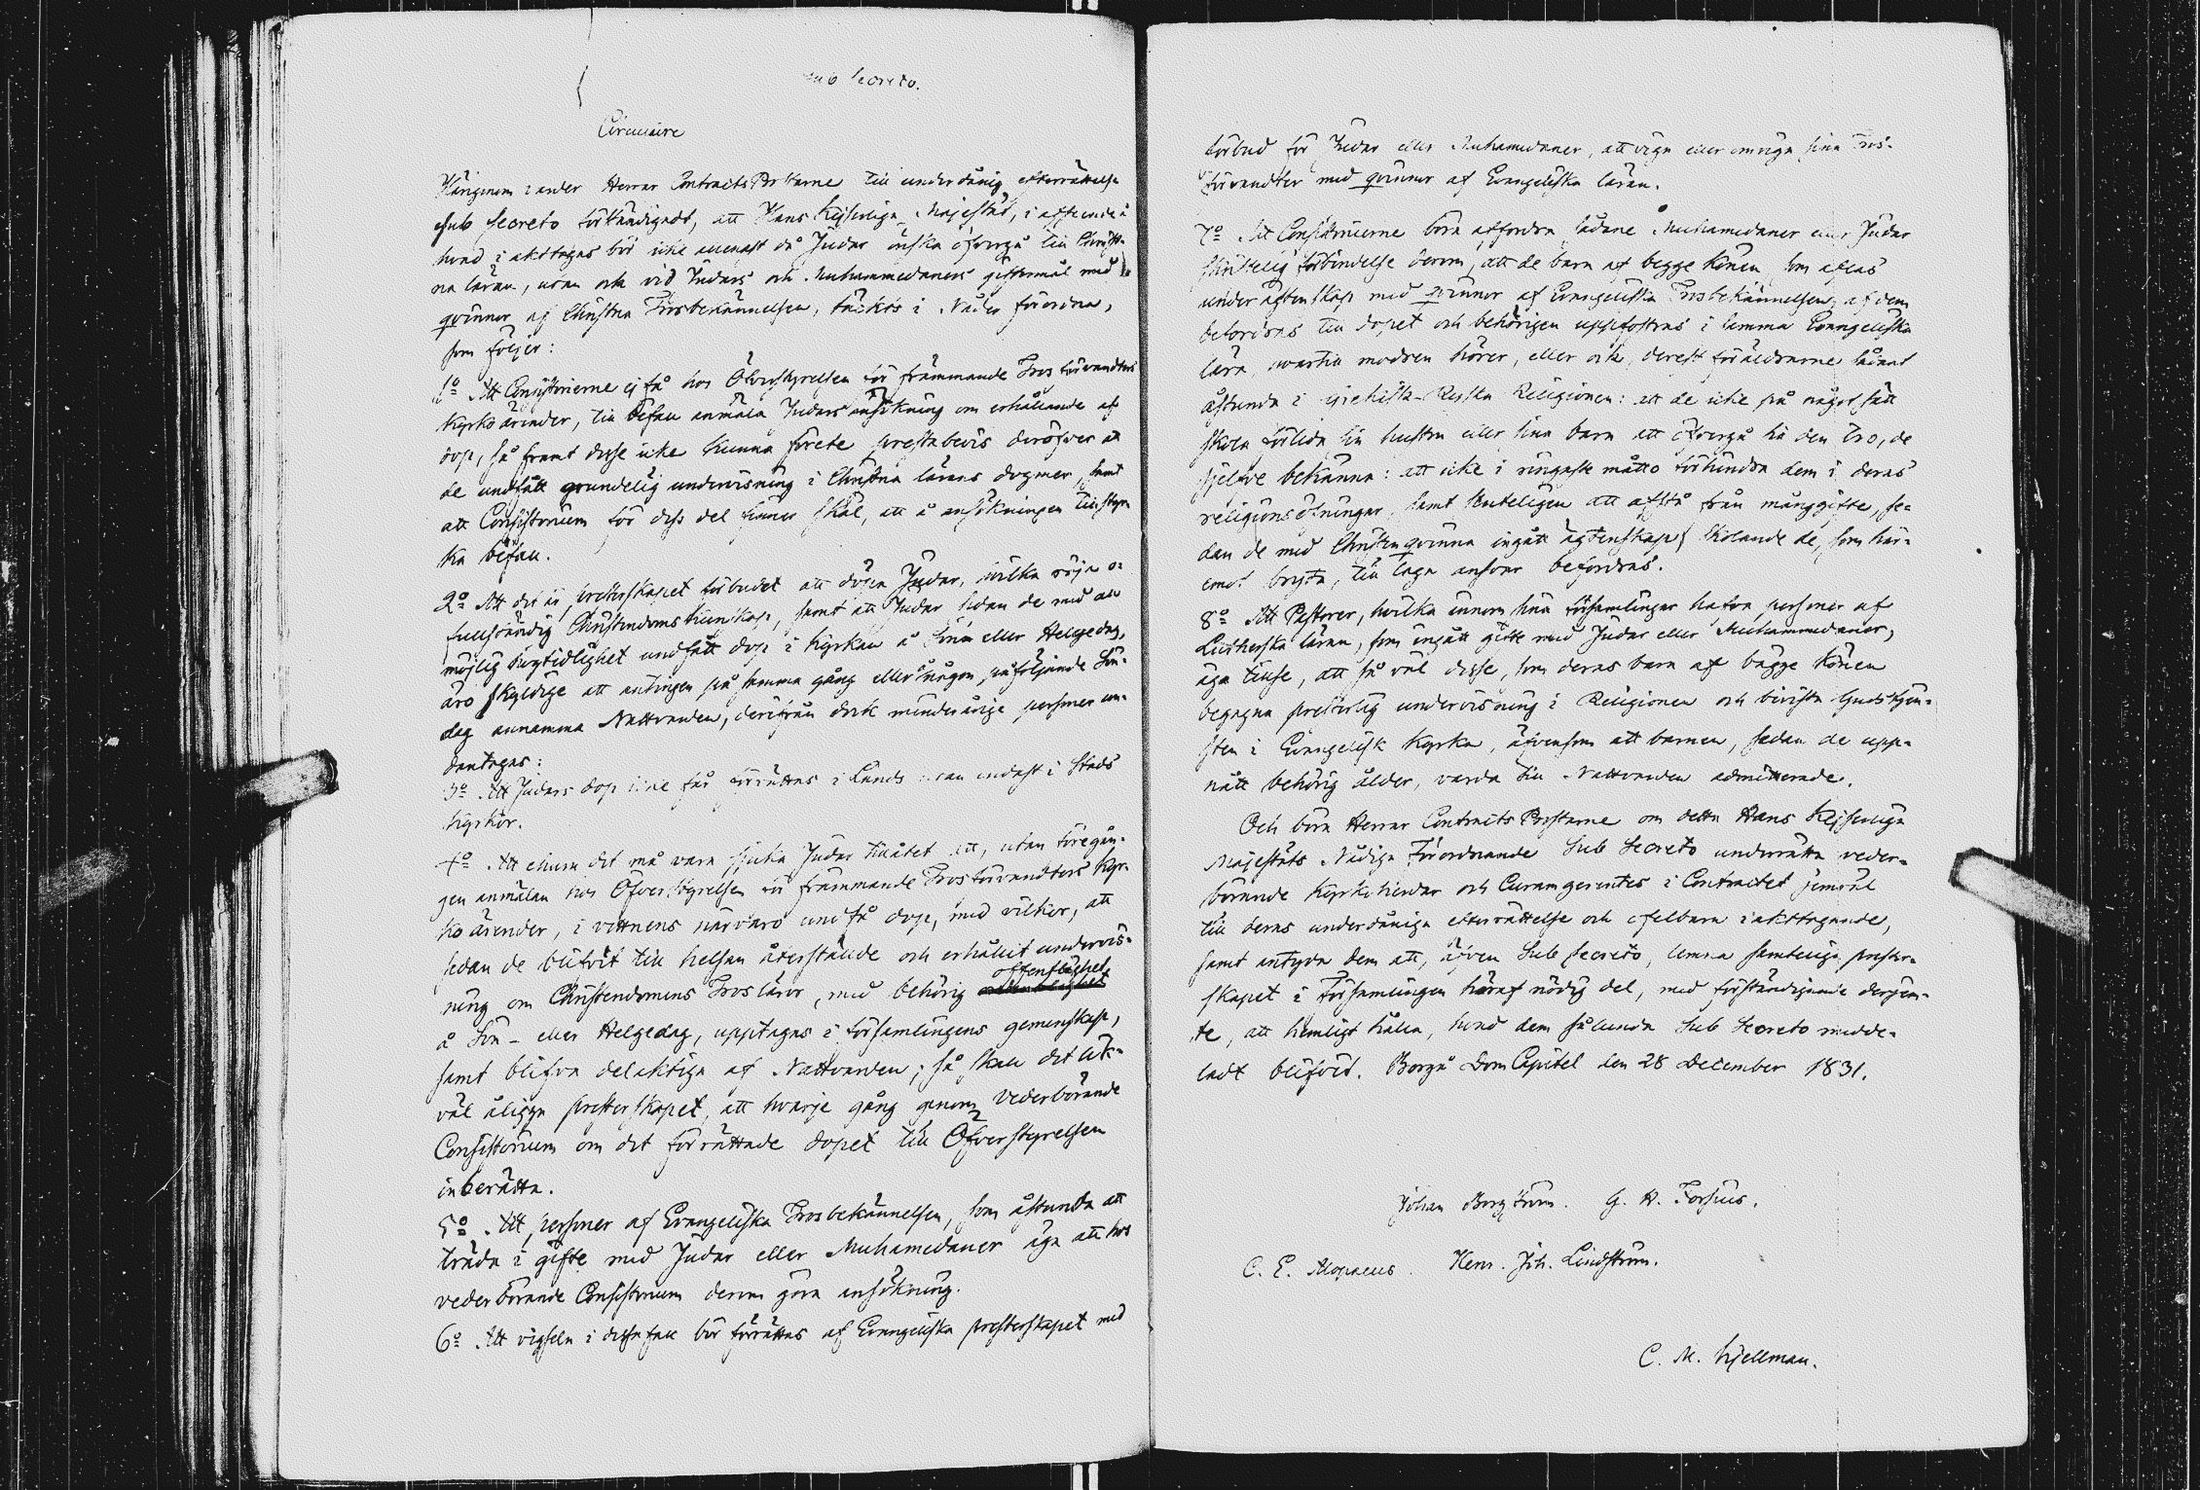 sub Secreto.
Circulaire
Härigenom warder Herrar ContractsProstarne till underdånig efterrättelse
sub Secreto förständigadt, att Hans Kejserliga Majestät, i afseende å
hvad i akttagas bör icke allenast då Judar önska öfvergå till Christ-
na läran, utan ock vid Judars och Muhammedaners giftermål med
qvinnor af Christna Trosbekännelsen, täckts i Nåder förordna,
som följer:
1o Att Consistorierne ej få hos Öfverstyrelsen för främmande Trosförvandters
Kyrkoärender, till bifall anmäla Judars ansökning om erhållande af
dop, så framt desse icke kunna förete prestabevis deröfver att
de undfått grundelig undervisning i Christna lärans dogmer, samt
att Consistorium för dess del finner skäl, att å ansökningen tillstyr-
ka bifall.
2o Att det är presterskapet förbudet att döpa Judar, hvilka röja o-
fullständig Christendoms kunskap, samt att Judar sedan de med all
möjlig högtidlighet undfått dop i kyrkan å Sönn eller Helgedag,
äro skyldige att antingen på samma gång eller någon påföljande Sön-
dag annamma Nattvarden, derifrån dock minderårige personer un-
dantagas:
3o Att Judars dop icke får förrättas i Lands utan endast i Stads
kyrkor.
4o Att ehuru det må vara sjuka Judar tillåtet att, utan föregån-
gen anmälan hos Öfverstyrelsen för främmande Trosförvandters Kyr-
ko ärender, i vittnens närvaro undfå dop, med vilkor, att
sedan de blifvit till helsan återställde och erhållit undervis-
ning om Christendomens Trosläror, med behörig offentlighet
å Sön- eller Helgedag, upptagas i församlingens gemenskap,
samt blifva delaktiga af Nattvarden; så skall det lik-
väl åligga presterskapet, att hvarje gång genom vederbörande
Consistorium om det förrättade dopet till Öfverstyrelsen
inberätta.
5o Att personer af Evangeliska Trosbekännelsen, som åstunda att
träda i gifte med Judar eller Muhamedaner äga att hos
vederbörande Consistorium derom göra ansökning.
6o Att vigseln i dessa fall bör förrättas af Evangeliska presterskapet med
förbud för Judar eller Muhamedaner, att viga eller omviga sina Tros-
förvandter med qvinnor af Evangeliska läran.
7o Att Consistorierne böra affordra sådane Muhamedaner eller Judar
skriftelig förbindelse derom, att de barn af begge könen som aflas
under äktenskap med qvinnor af Evangeliska Trosbekännelsen, af dem
befordras till dopet och behörigen uppfostras i samma Evangeliska
lära, hvartill modren hörer, eller ock, derest föräldrarne sådant
åstunda i Grekisk-Ryska Religionen: att de icke på något sätt
skola förleda sin hustru eller sina barn att öfvergå till den tro, de
sjelfve bekänna: att icke i ringaste måtto förhindra dem i deras
religionsöfningar, samt sluteligen att afstå från månggifte, se-
dan de med Christen qvinna ingått ägtenskap; skolande de, som här-
emot bryta, till laga ansvar befordras.
8o Att Pastorer, hvilka innom sina församlingar hafva personer af
Lutherska läran, som ingått gifte med Judar eller Muhammedaner,
äga tillse, att så väl desse, som deras barn af bägge könen
begagna presterlig undervisning i Religionen och bivista Gudstjen-
sten i Evangelisk kyrka, äfvensom att barnen, sedan de upp-
nått behörig ålder, varda till Nattvarden admitterade.
Och böra Herrar ContractsProstarne om detta Hans Kejserliga
Majestäts Nådiga Förordnande Sub Secreto underrätta veder-
börande Kyrkoherdar och Curamgerentes i Contractet jemväl
till deras underdåniga efterrättelse och ofelbara i akttagande,
samt antyda dem att, äfven Sub Secreto, lemna samteliga prester-
skapet i Församlingen häraf nödig del, med förständigande derjem-
te, att hemligt hålla, hvad dem sålunda Sub Secreto medde-
ladt blifvit. Borgå DomCapitel den 28 December 1831.
Johan Borgström. G. A. Forsius.
C. E. Alopaeus. Henr. Joh. Lindström.
C. M. Kjellman.